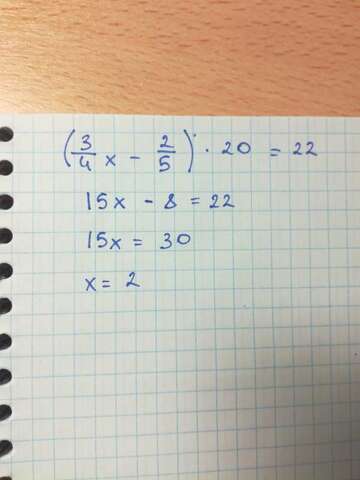 (3/4 x - 2/5) · 20 = 22
15x - 8 = 22
15x = 30
x = 2